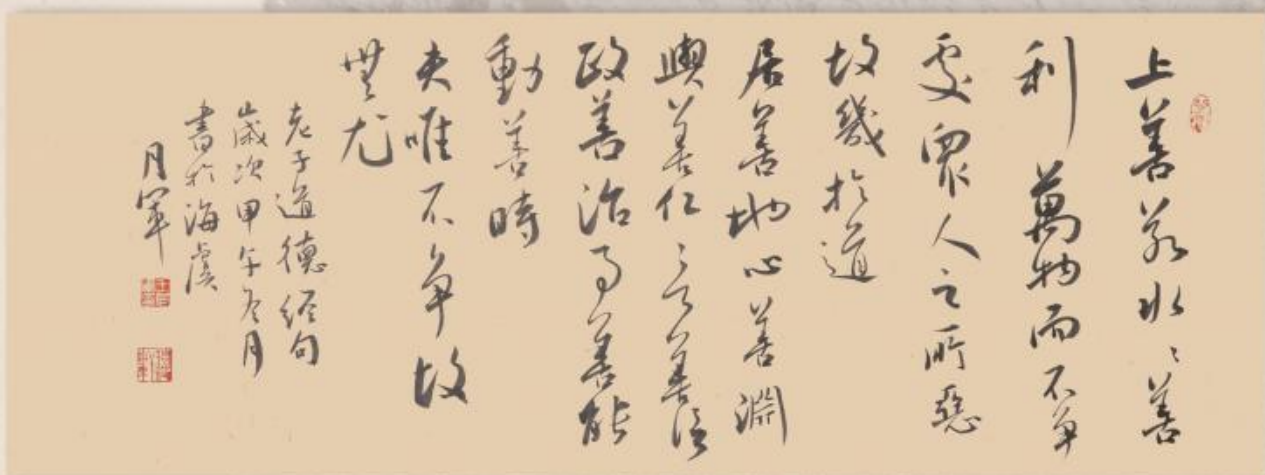 上善若水〻善
利萬物而不争
處眾人之所惡
故幾於道
居善地心善淵
與善仁言善信
政善治事善能
動善時
夫唯不争故
無尤
老子道德经句
歲次甲午冬月
書於海虞
月軍